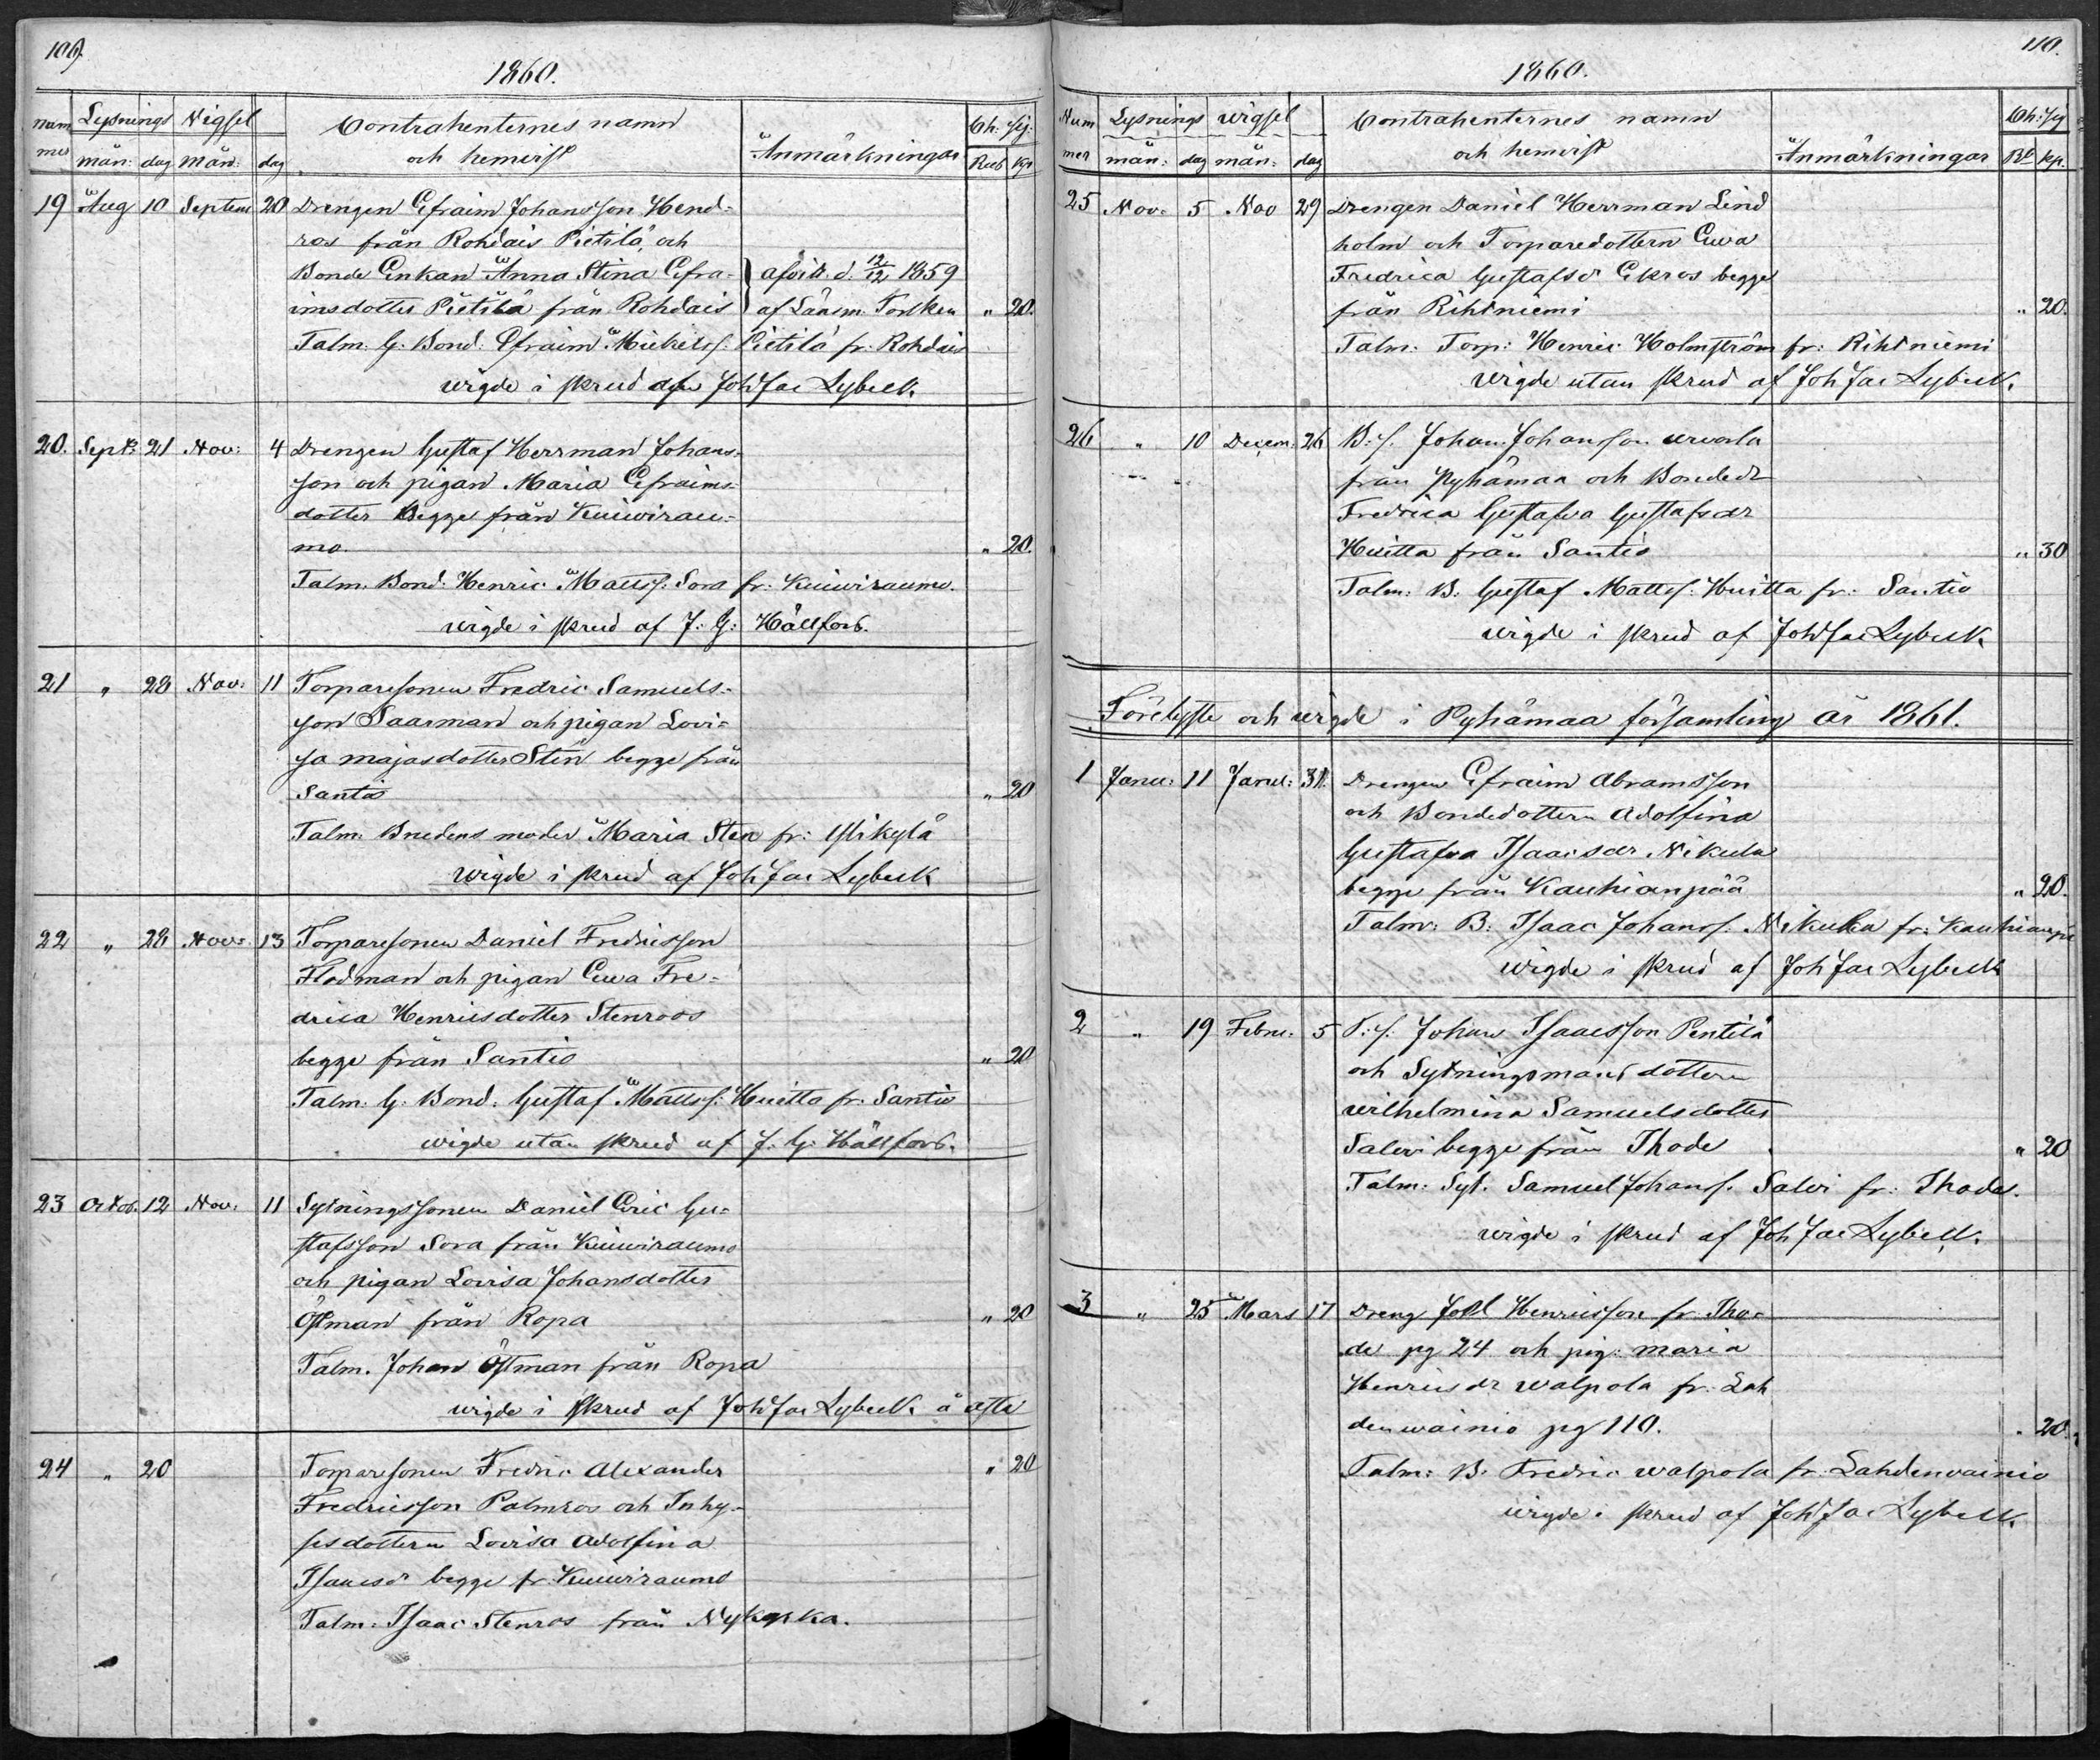 109.
1860.
Num mer Lysnings Vigsel Contrahenternes namn Ch: Sig:
mån: dag mån: dag och hemvist Anmärkningar Rub Kp
19 Aug 10 Septem 20 Drengen Efraim Johansson Hend-
ros från Rohdais Pietilä, och
Bonde Enkan Anna Stina Efra- afvitt. d. 12/12 1859
imsdotter Pietilä från Rohdais af Länsm. Forlken " 20.
Talm. G. Bond. Efraim Michelss. Pietilä fr. Rohdais
wigde i skrud af Joh Jac Lybeck.
20. Sept: 21 Nov: 4 Drengen Gustaf Herrman Johans-
son och pigan Maria Efraims-
dotter Begge från Kuiwirau-
mo. " 20.
Talm. Bond: Henric Matts: Sora fr: Kuiwiraumo.
wigde i skrud af J: G: Hällfors.
21 " 28 Nov: 11 Torparesonen Fredric Samuels-
son Saarman och pigan Lovi-
sa majasdotter Sten begge från
Santio " 20
Talm: Brudens moder Maria Sten fr: Ylikylä
wigde i skrud af Joh Jac Lybeck
22 " 28 Nov: 13 Torparesonen Daniel Fredricsson
Flodman och pigan Ewa Fre-
drica Henricsdotter Stenroos
begge från Santio " 20
Talm. G. Bond. Gustaf Mattss: Huitta fr. Santio
wigde utan skrud af J. G. Hällfors.
23 Octob. 12 Nov. 11 Sytningssonen Daniel Eric Gu-
stafsson Sora från Kuiwiraumo
och pigan Lovisa Johansdotter
Östman från Ropa " 20
Talm. Johan Östman från Ropa
wigde i skrud af Joh Jac Lybeck. å
24 " 20 Torparesonen Fredric Alexander " 20
Fredricsson Palmros och Inhy-
sesdottern Lovisa Adolfina
Isacsdr begge fr. Kuiwiraumo
Talm: Isaac Stenros från Nykyrka.
110.
1860.
Num mer Lysnings wigsel Contrahenternes namn Ch: Sig
mån: dag mån: dag och hemvist Anmärkningar Rl kp.
25 Nov. 5 Nov 29 Drengen Daniel Herrman Lind
holm och Torparedottern Ewa
Fredrica Gustafsdr Ekros begge
från Rihtniemi " 20.
Talm. Torp: Henric Holmström fr: Rihtniemi
wigde utan skrud af Joh Jac Lybeck.
26 " 10 Decem: 26 B: s. Johan Johansson urvala
från Pyhämaa och Bondedr
Fredrica Gustafva Gustafsdr
Huitta från Santio " 30
Talm: B: Gustaf Mattss: Huitta fr: Santio
wigde i skrud af Joh Jac Lybeck
Förelyste och wigde i Pyhämaa församling år 1861.
1 Janu: 11 Janu: 31. Drengen Efraim Abramsson
och Bondedottern Adolfina
Gustafva Isaacsdr Nikula
begge från Kauhianpää " 20.
Talm: B: Isaac Johanss. Nikula fr: Kauhianpä
wigde i skrud af Joh Jac Lybeck
2 " 19 Febru: 5 T: s. Johan Isaacsson Pentilä
och Sytningsmansdottern
wilhelmina Samuelsdotter
Salevi begge från Ihode " 20
Talm: Syt. Samuel Johans. Salvi fr: Ihode.
wigde i skrud af Joh Jac Lybeck.
3 " 25 Mars 17 Dreng Joel Henricsson fr. Iho-
de pg 24 och pig: maria
Henricsdr walpola fr. Lah
denwainio pg 110. " 20.
Talm: B: Fredric walpola fr. Lahdenwainio
wigde i skrud af Joh Jac Lybeck.